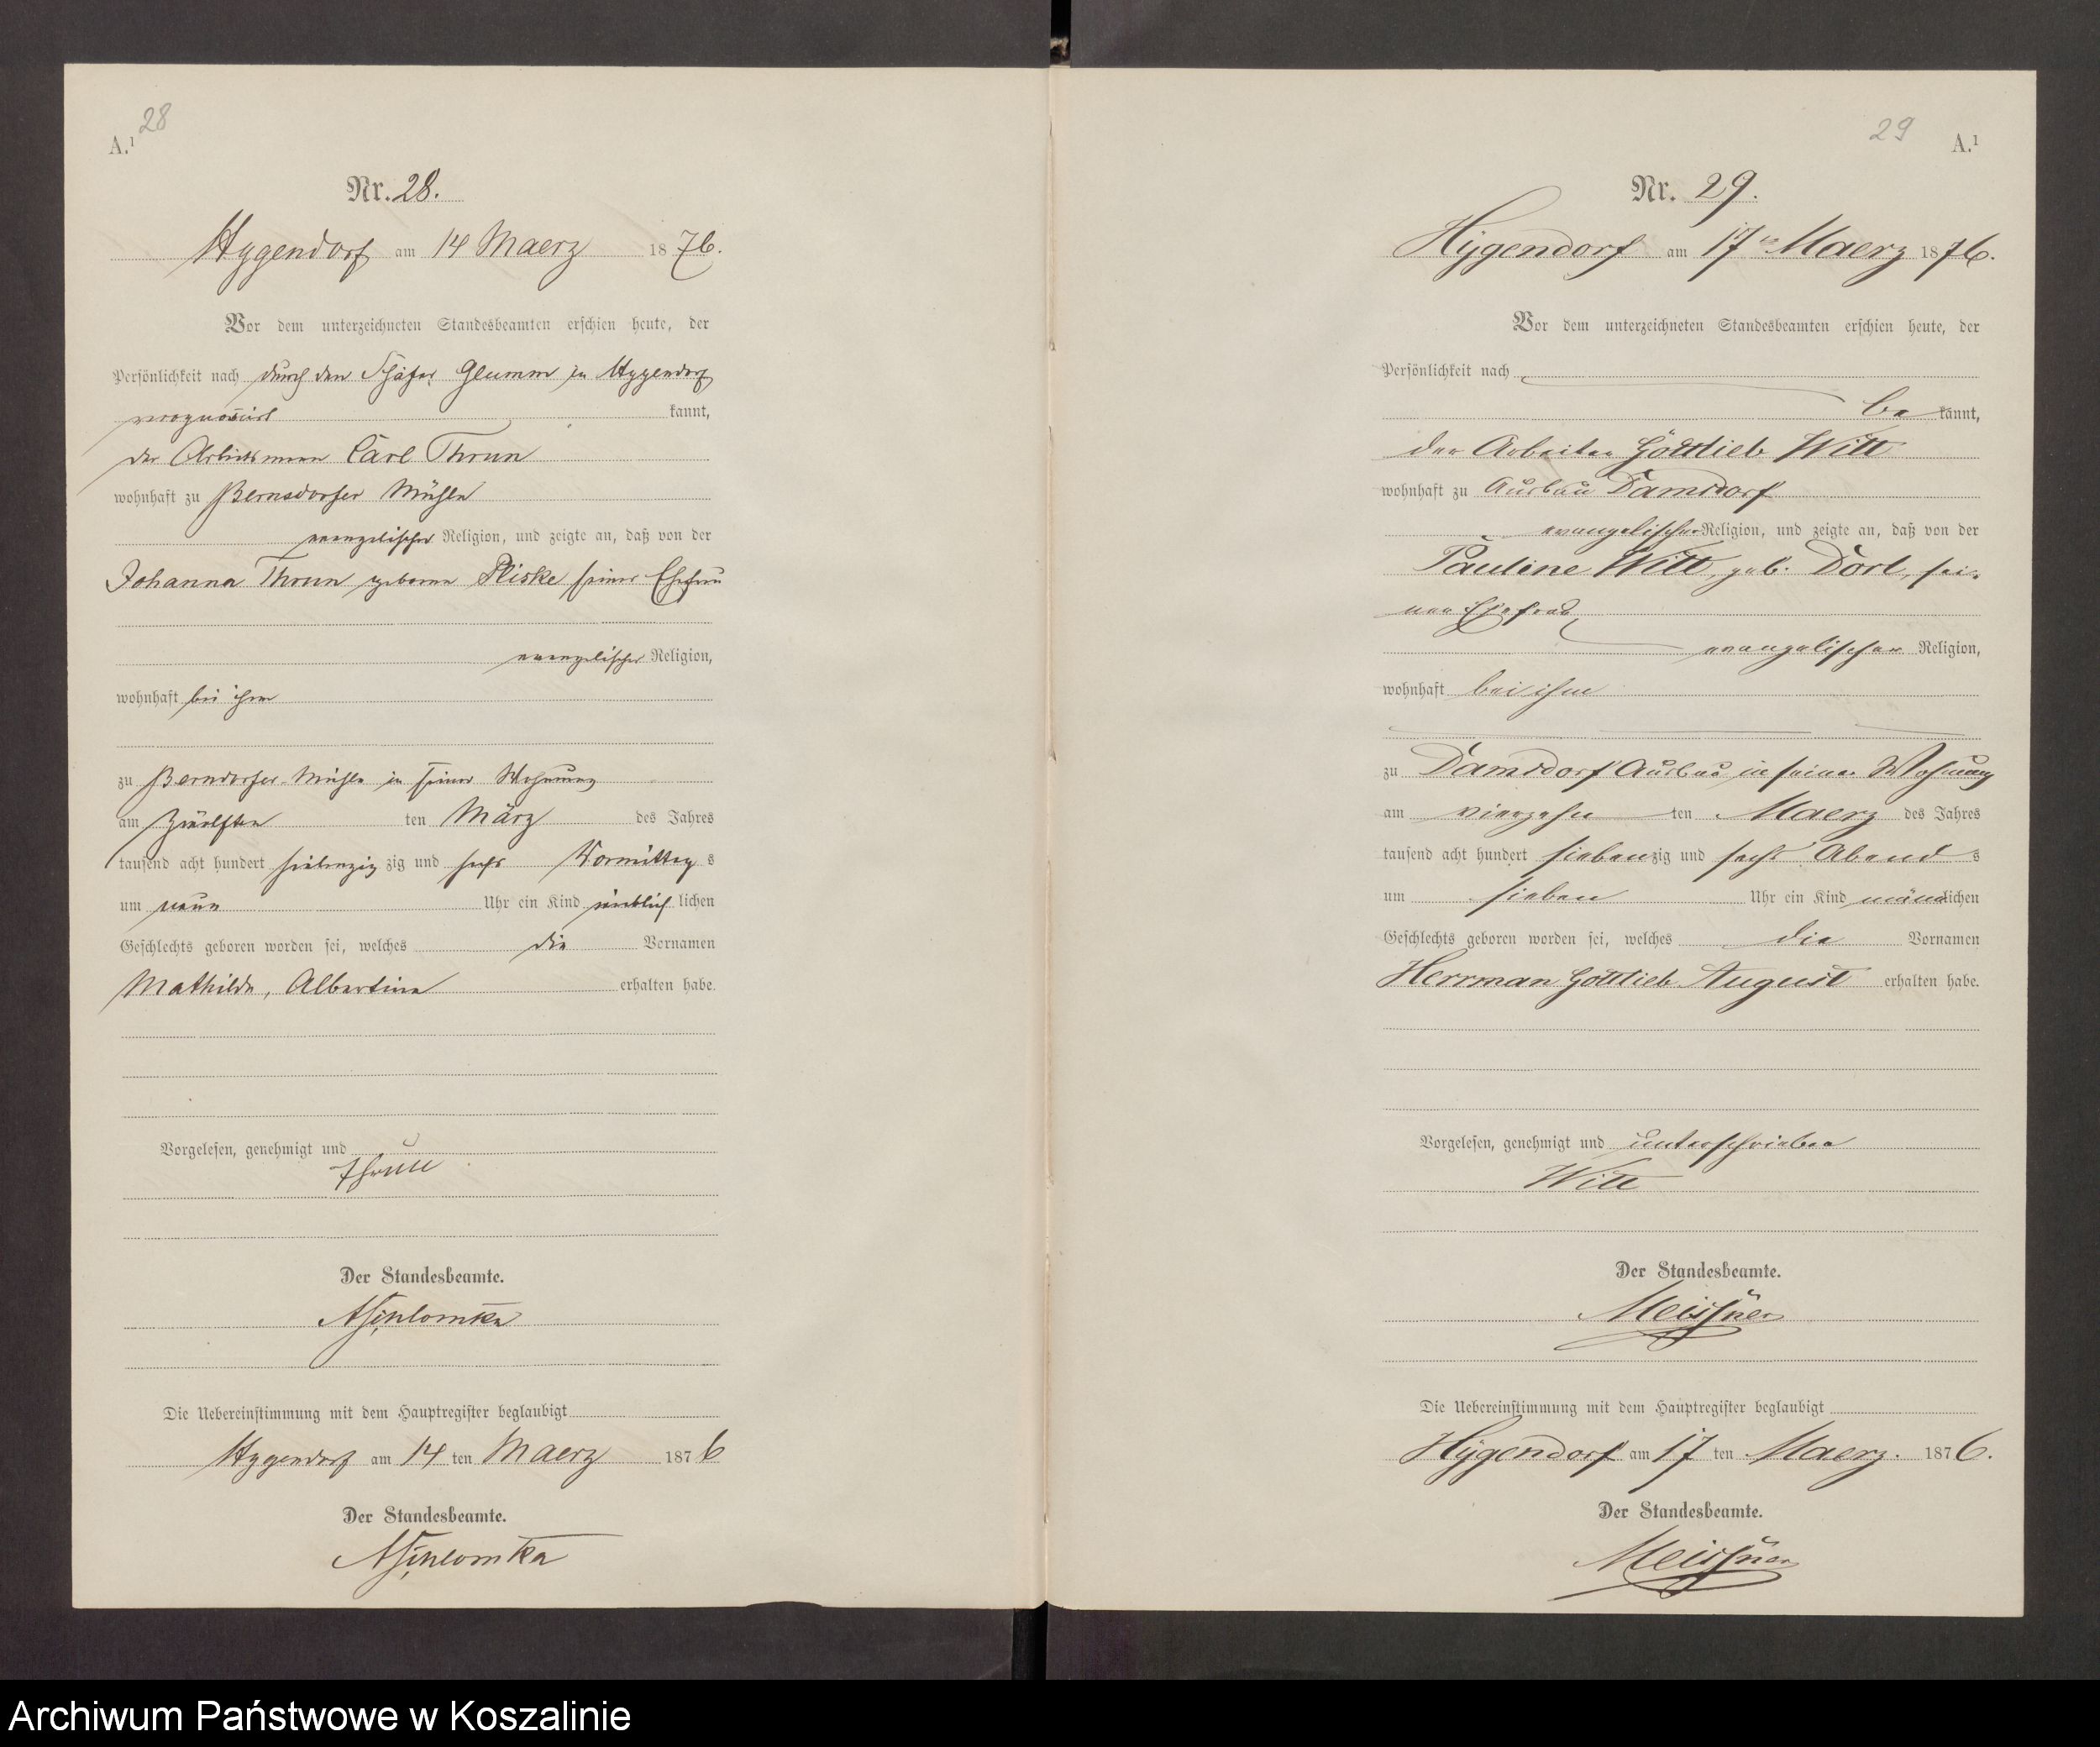 28
A.¹
Nr. 28.
Hygendorf am 14 Maerz 1876.
Vor dem unterzeichneten Standesbeamten erschien heute, der
Persönlichkeit nach durch den Schäfer Glumm in Hygendorf
recognoscirt kannt,
der Arbeitsmann Carl Thrun
wohnhaft zu Bernsdorfer Mühle
evangelischer Religion, und zeigte an, daß von der
Johanna Thrun geborne Pliske seiner Ehefrau
evangelischer Religion,
wohnhaft bei ihm
zu Berndorfer-Mühle in seiner Wohnung
am Zwölften ten März des Jahres
tausend acht hundert siebenzig zig und sechs Vormittag s
um neun Uhr ein Kind weiblich lichen
Geschlechts geboren worden sei, welches die Vornamen
Mathilde, Albertine erhalten habe.
Vorgelesen, genehmigt und
Thrun
Der Standesbeamte.
Die Uebereinstimmung mit dem Hauptregister beglaubigt
Hygendorf am 14 ten Maerz 1876
Der Standesbeamte.
29
A.¹
Nr. 29.
Hygendorf am 17ten Maerz 1876.
Vor dem unterzeichneten Standesbeamten erschien heute, der
Persönlichkeit nach
be kannt,
der Arbeiter Gottlieb Witt
wohnhaft zu Ausbau Damsdorf
evangelischer Religion, und zeigte an, daß von der
Pauline Witt, geb. Dorl, sei-
ner Ehefrau,
evangelischer Religion,
wohnhaft bei ihm
zu Damsdorf Ausbau in seiner Wohnung
am vierzehn ten Maerz des Jahres
tausend acht hundert siebenzig und sechs Abend s
um sieben Uhr ein Kind männlichen
Geschlechts geboren worden sei, welches die Vornamen
Herrman Gottlieb August erhalten habe.
Vorgelesen, genehmigt und unterschrieben
Witt
Der Standesbeamte.
Meissner
Die Uebereinstimmung mit dem Hauptregister beglaubigt
Hygendorf am 17 ten Maerz. 1876.
Der Standesbeamte.
Meissner
Archiwum Państwowe w Koszalinie